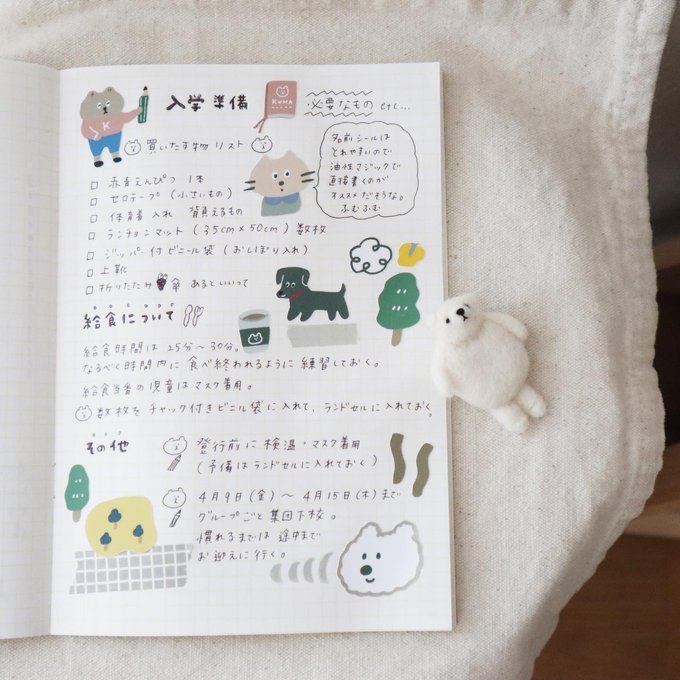 入学準備
K
KUMA
必要なもの etc...
買いたす物リスト
名前シールは
とれやすいので
油性マジックで
直接書くのが
オススメだそうな。
ふむふむ
□ 赤青えんぴつ 1本
□ セロテープ (小さいもの)
□ 体育着入れ 背負えるもの
□ ランチョンマット (35cm×50cm) 数枚
□ ジッパー付ビニール袋 (おしぼり入れ)
□ 上靴
□ 折りたたみ傘 あるといいって
給食について
給食時間は 25分~30分。
なるべく時間内に 食べ終われるように 練習しておく。
給食当番の児童はマスク着用。
数枚をチャック付きビニル袋に入れて、ランドセルに入れておく。
その他
登行前に検温・マスク着用
(予備はランドセルに入れておく)
4月9日(金)~4月15日(木)まで
グループごと集団下校。
慣れるまでは 途中まで
お迎えに行く。